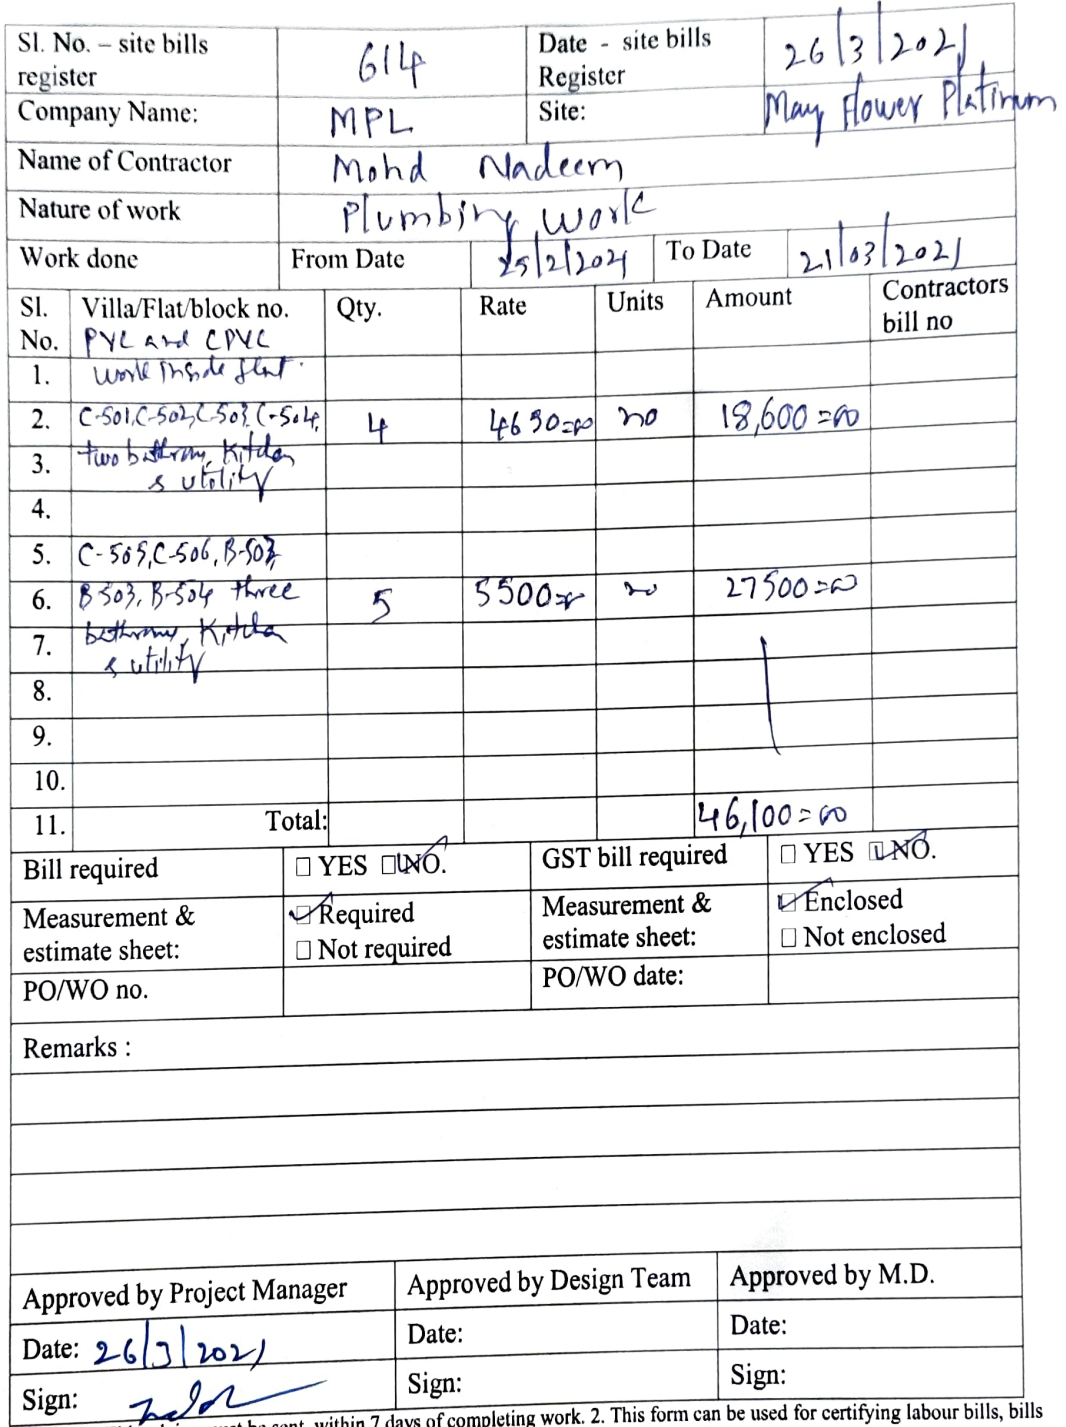 Sl. No. – site bills register 614 Date - site bills Register 26/3/2021
Company Name: MPL Site: May Flower Platinum
Name of Contractor Mohd Nadeem
Nature of work Plumbing work
Work done From Date 25/2/2021 To Date 21/03/2021
Sl. No. Villa/Flat/block no. Qty. Rate Units Amount Contractors bill no
PVC and CPVC
1. work inside flat.
2. C-501, C-502, C-503, C-504, 4 4650=00 no 18,600=00
3. two bathroom, Kitchen
& utility
4.
5. C-505, C-506, B-502,
6. B-503, B-504 three 5 5500= no 27500=00
7. bathrooms, Kitchen
& utility
8.
9.
10.
11. Total: 46,100=00
Bill required YES NO. GST bill required YES NO.
Measurement & estimate sheet: Required Measurement & estimate sheet: Enclosed
Not required Not enclosed
PO/WO no. PO/WO date:
Remarks :
Approved by Project Manager Approved by Design Team Approved by M.D.
Date: 26/3/2021 Date: Date:
Sign: Sign: Sign:
within 7 days of completing work. 2. This form can be used for certifying labour bills, bills